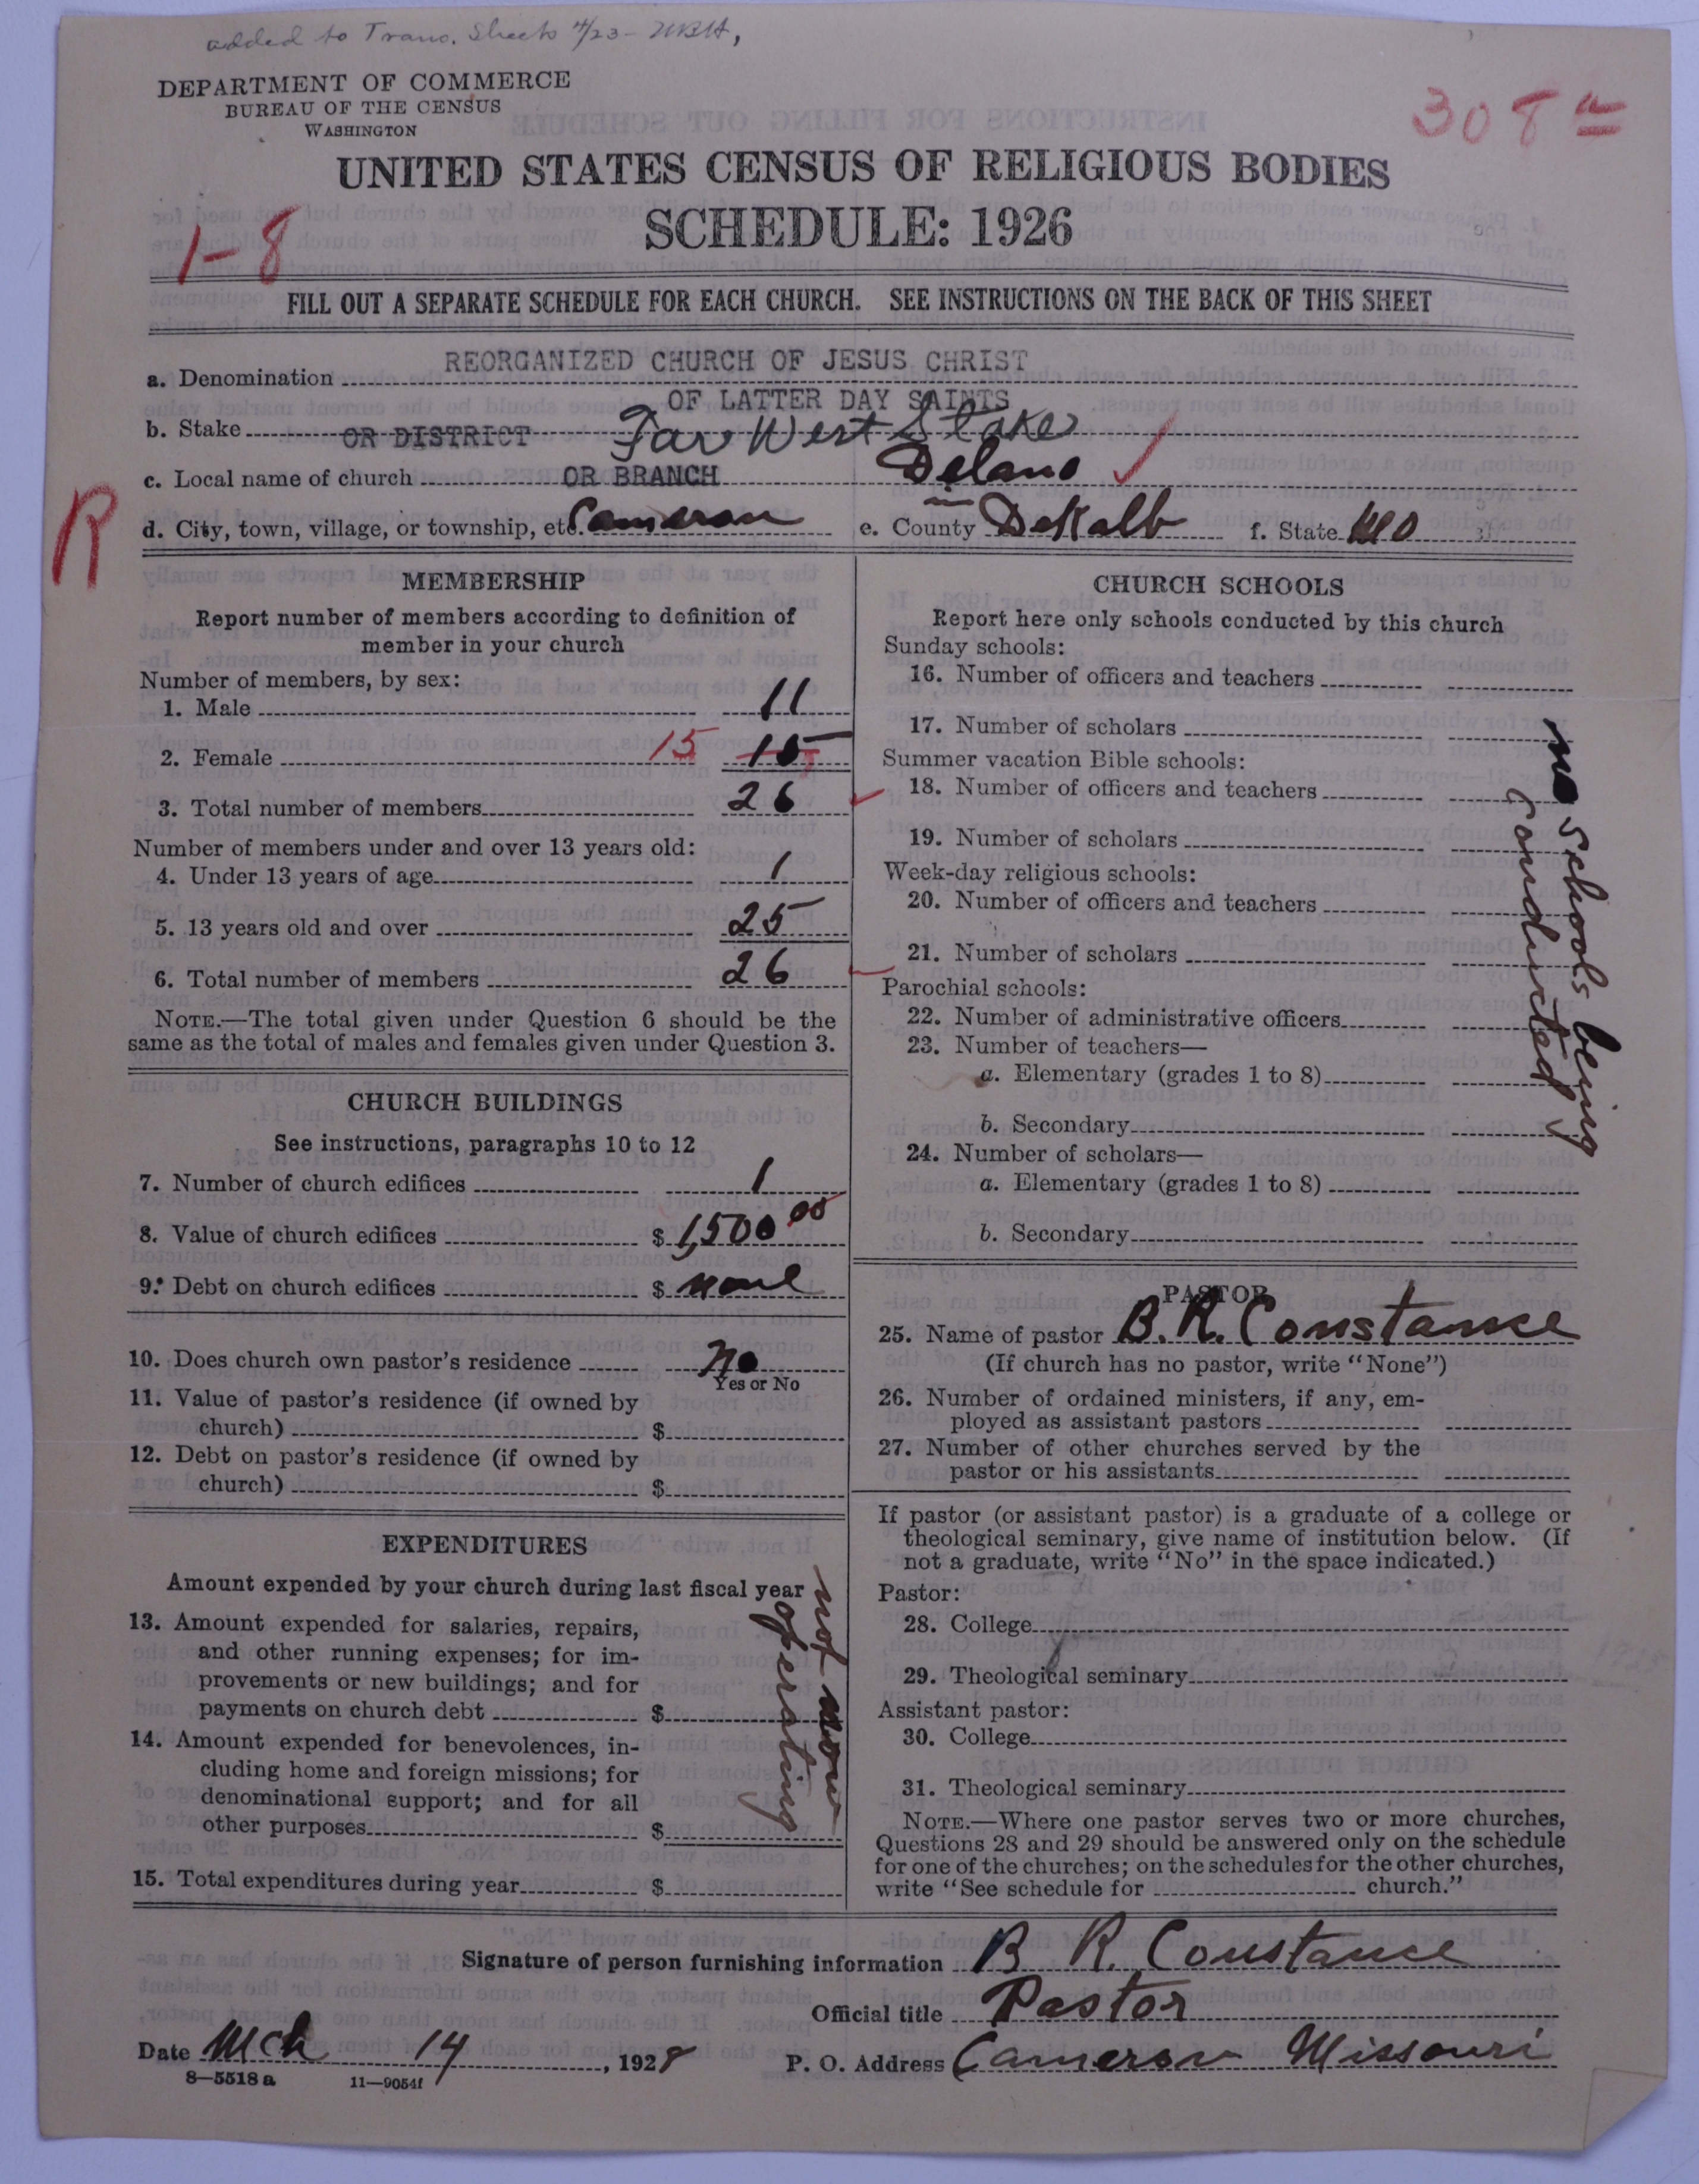 added to Trans. Sheets 4/23 - WBH,
DEPARTMENT OF COMMERCE
BUREAU OF THE CENSUS
WASHINGTON
308 a
UNITED STATES CENSUS OF RELIGIOUS BODIES
SCHEDULE: 1926
1-8
FILL OUT A SEPARATE SCHEDULE FOR EACH CHURCH. SEE INSTRUCTIONS ON THE BACK OF THIS SHEET
a. Denomination REORGANIZED CHURCH OF JESUS CHRIST
OF LATTER DAY SAINTS
b. Stake OR DISTRICT Far West Stake
c. Local name of church OR BRANCH Delano
R
d. City, town, village, or township, etc. Cameron e. County DeKalb f. State Mo
MEMBERSHIP
Report number of members according to definition of
member in your church
Number of members, by sex:
1. Male 11
2. Female 15 15
3. Total number of members 26
Number of members under and over 13 years old:
4. Under 13 years of age 1
5. 13 years old and over 25
6. Total number of members 26
NOTE.—The total given under Question 6 should be the
same as the total of males and females given under Question 3.
CHURCH BUILDINGS
See instructions, paragraphs 10 to 12
7. Number of church edifices 1
8. Value of church edifices $ 1,500 00
9. Debt on church edifices $ none
10. Does church own pastor's residence No
Yes or No
11. Value of pastor's residence (if owned by
church) $
12. Debt on pastor's residence (if owned by
church) $
EXPENDITURES
Amount expended by your church during last fiscal year
13. Amount expended for salaries, repairs,
and other running expenses; for im-
provements or new buildings; and for
payments on church debt $
14. Amount expended for benevolences, in-
cluding home and foreign missions; for
denominational support; and for all
other purposes $
15. Total expenditures during year $
not now
operating
CHURCH SCHOOLS
Report here only schools conducted by this church
Sunday schools:
16. Number of officers and teachers
17. Number of scholars
Summer vacation Bible schools:
18. Number of officers and teachers
19. Number of scholars
Week-day religious schools:
20. Number of officers and teachers
21. Number of scholars
Parochial schools:
22. Number of administrative officers
23. Number of teachers—
a. Elementary (grades 1 to 8)
b. Secondary
24. Number of scholars—
a. Elementary (grades 1 to 8)
b. Secondary
no schools being
conducted
PASTOR
25. Name of pastor B. R. Constance
(If church has no pastor, write "None")
26. Number of ordained ministers, if any, em-
ployed as assistant pastors
27. Number of other churches served by the
pastor or his assistants
If pastor (or assistant pastor) is a graduate of a college or
theological seminary, give name of institution below. (If
not a graduate, write "No" in the space indicated.)
Pastor:
28. College
29. Theological seminary
Assistant pastor:
30. College
31. Theological seminary
NOTE.—Where one pastor serves two or more churches,
Questions 28 and 29 should be answered only on the schedule
for one of the churches; on the schedules for the other churches,
write "See schedule for church."
Signature of person furnishing information B R. Constance
Official title Pastor
Date Mch 14, 1928 P. O. Address Cameron Missouri
8—5518 a 11—9054f